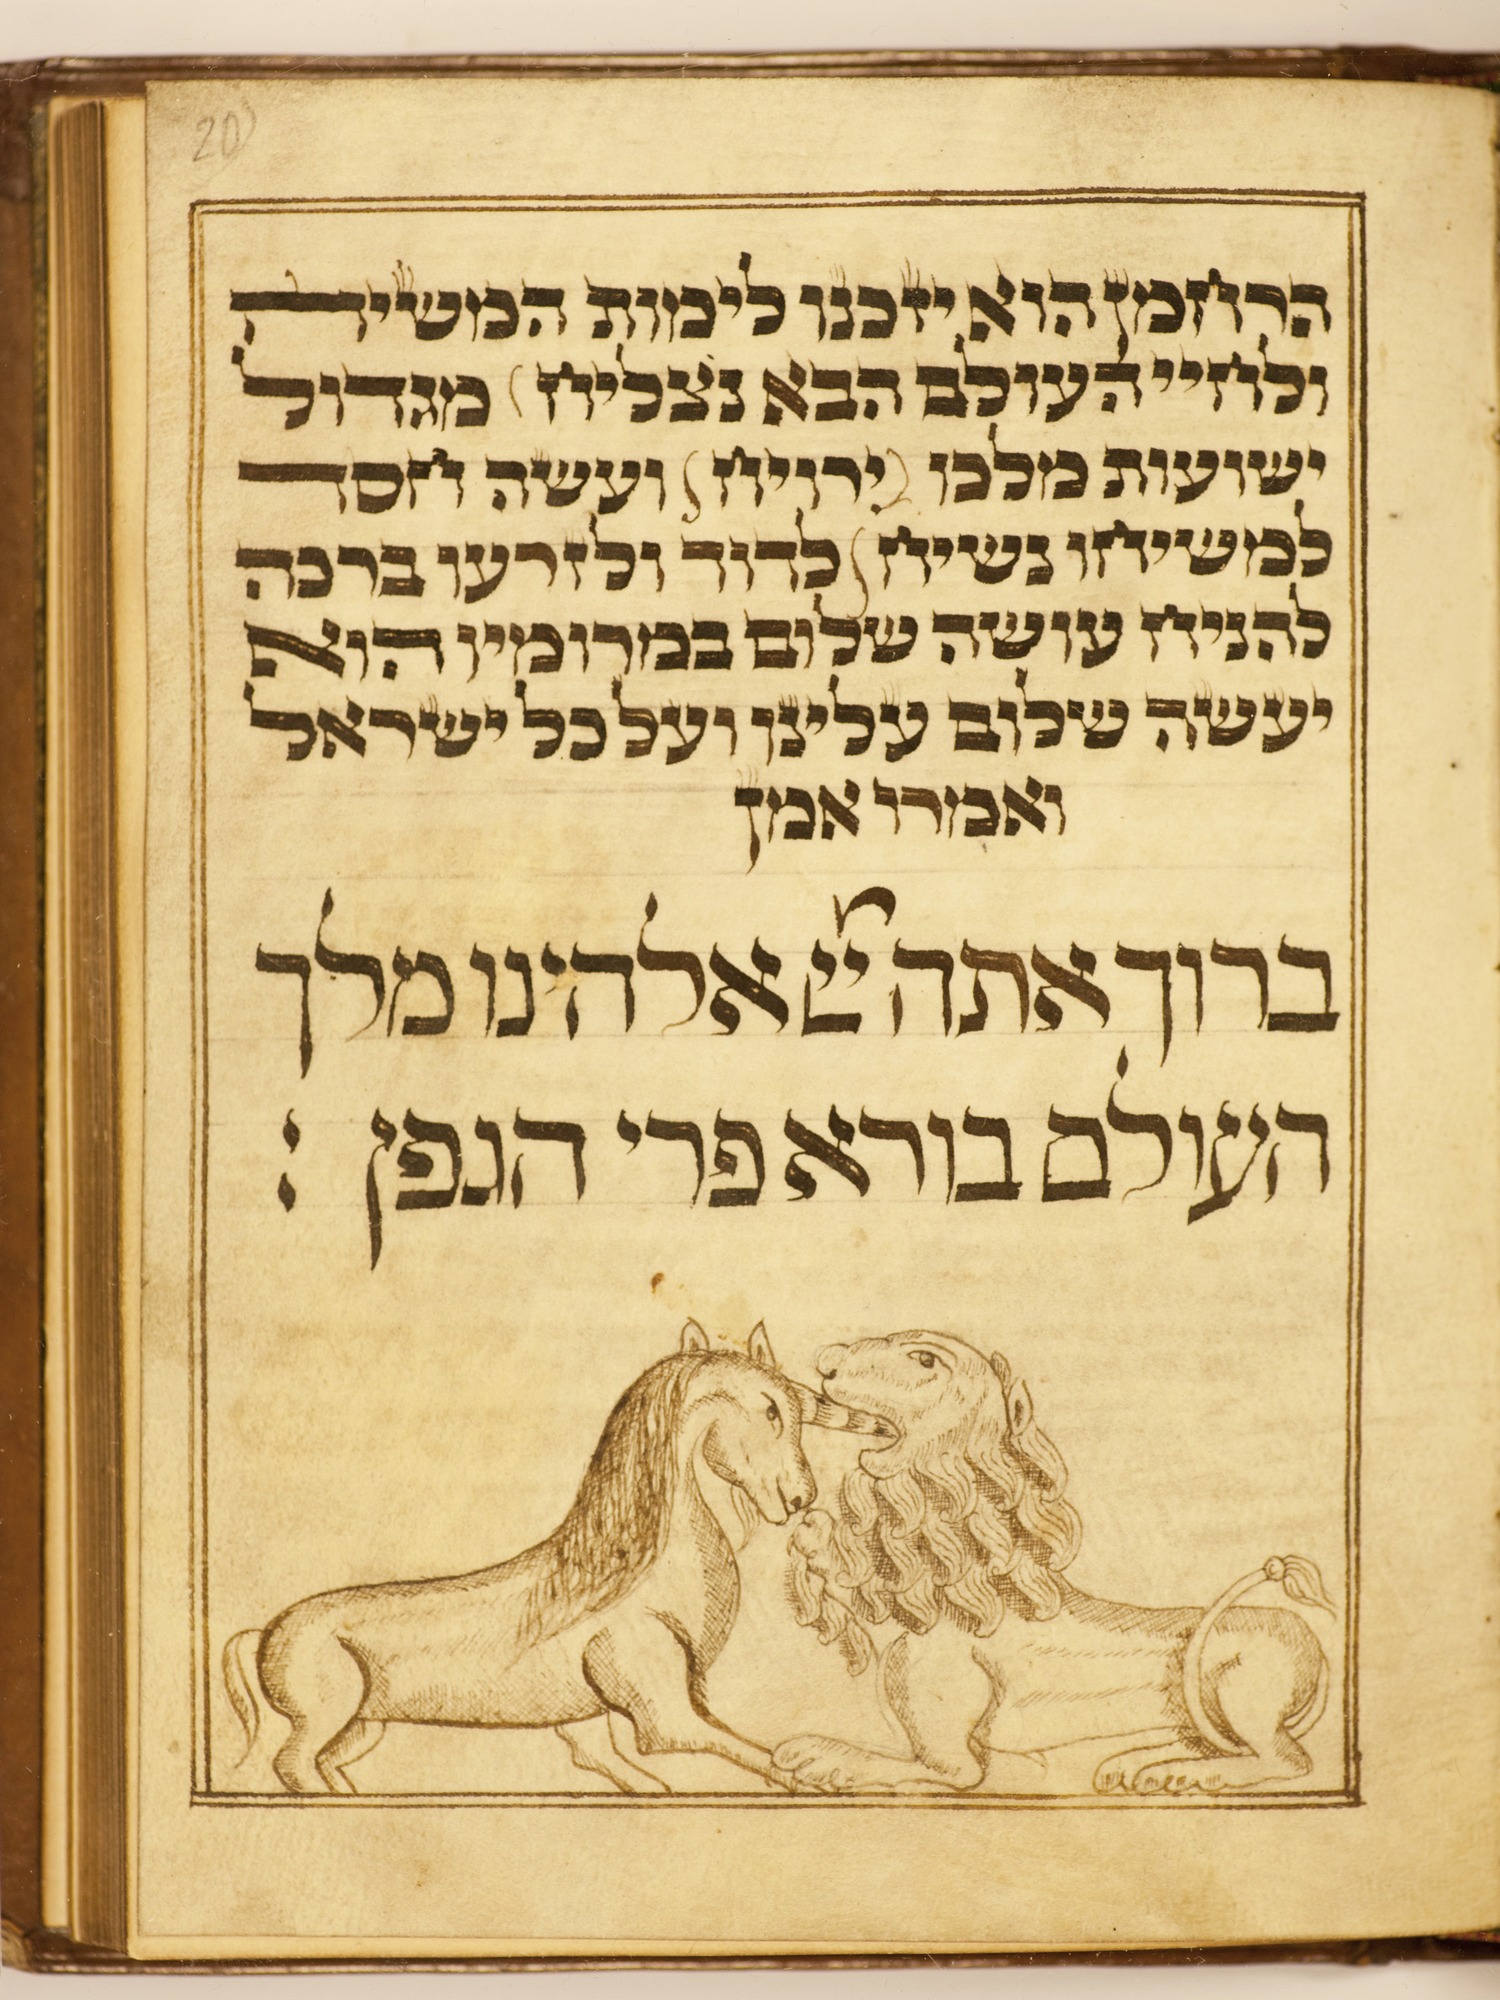 20
הרחמן הוא יזכנו לימות המשיח
ולחיי העולם הבא נצליח) מגדול
ישועות מלכו (ירויח) ועשה חסד
למשיחו נשיח) לדוד ולזרעו ברכה
להניח עושה שלום במרומיו הוא
יעשה שלום עלינו ועל כל ישראל
ואמרו אמן
ברוך אתה יי אלהינו מלך
העולם בורא פרי הגפן :